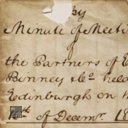 by
Minute of Meeti
of
the Partners of E
Binney & Co. held
Edinburgh on th
of Decemr. 18